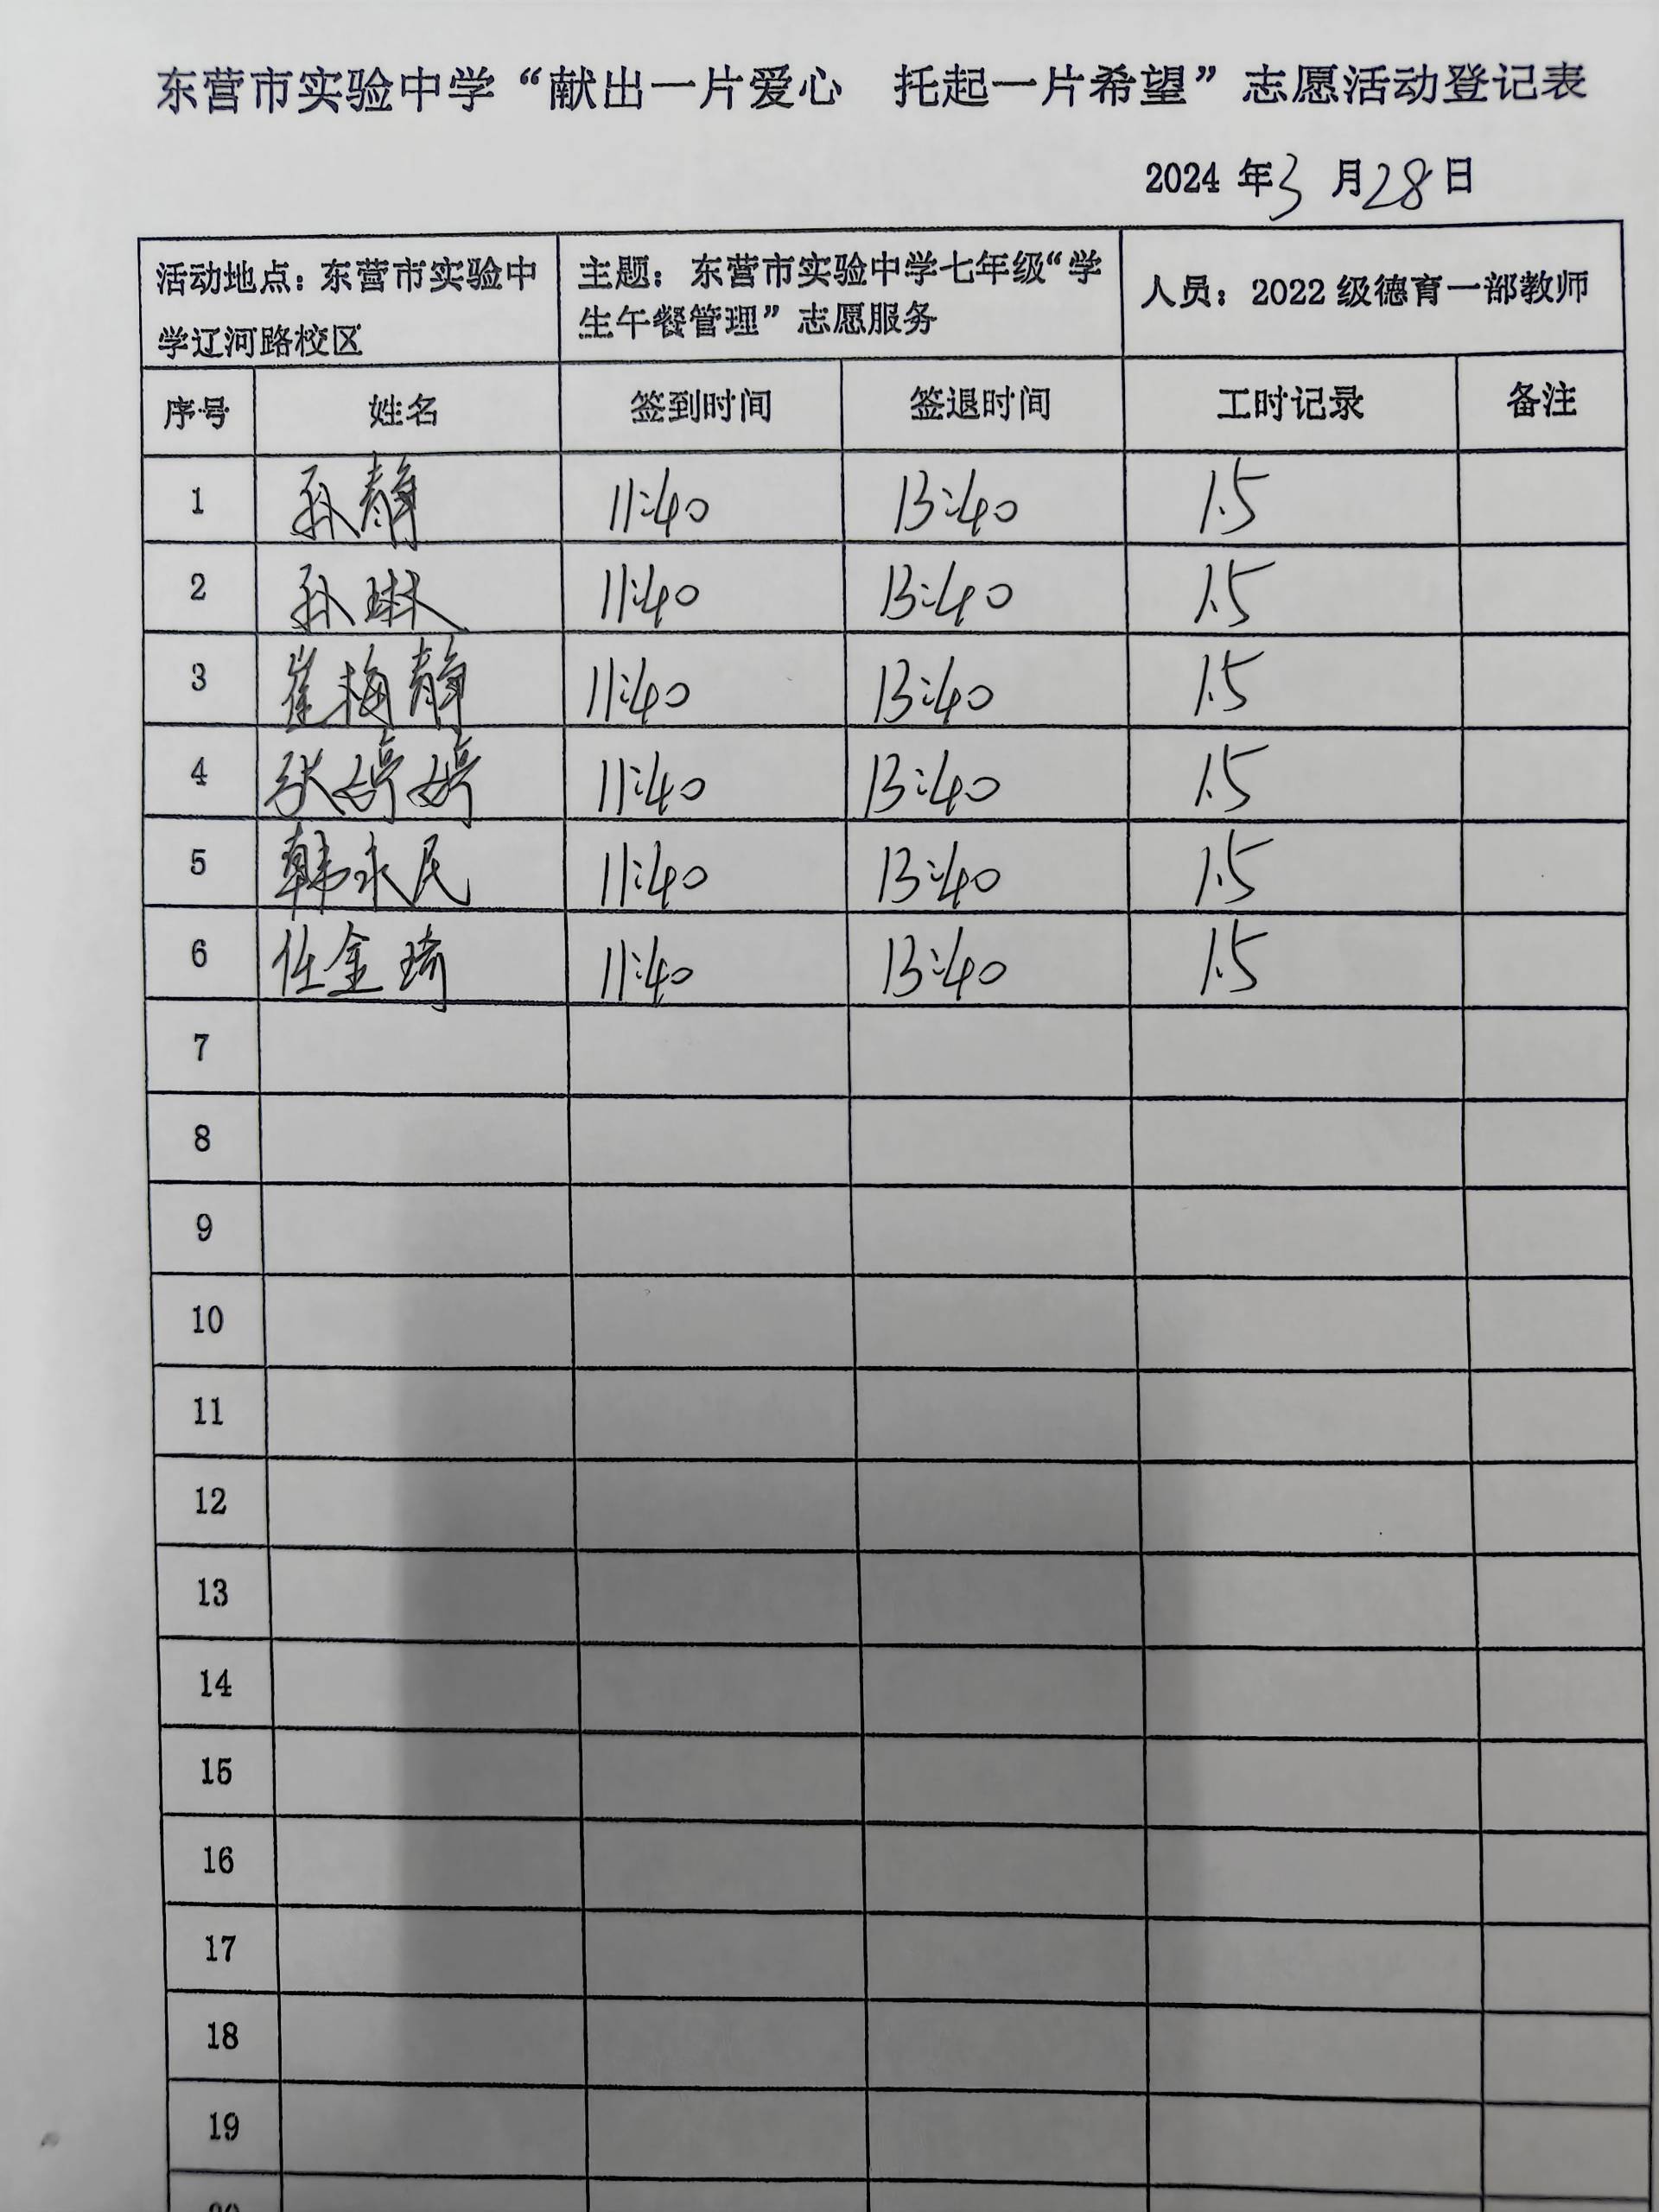 东营市实验中学“献出一片爱心 托起一片希望”志愿活动登记表
2024 年 3 月 28 日
活动地点：东营市实验中
学辽河路校区
主题：东营市实验中学七年级“学
生午餐管理”志愿服务
人员：2022 级德育一部教师
序号 姓名 签到时间 签退时间 工时记录 备注
1 孙静 11:40 13:40 1.5
2 孙琳 11:40 13:40 1.5
3 崔梅静 11:40 13:40 1.5
4 张婷婷 11:40 13:40 1.5
5 韩永民 11:40 13:40 1.5
6 任金琦 11:40 13:40 1.5
7
8
9
10
11
12
13
14
15
16
17
18
19